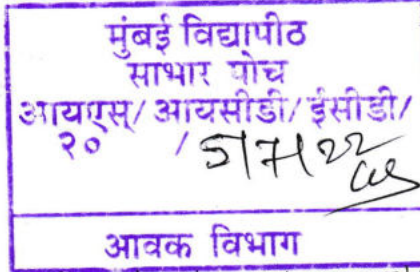 मुंबई विद्यापीठ
साभार पोच
आयएस/ आयसीडी/ ईसीडी/
२०      /
आवक विभाग